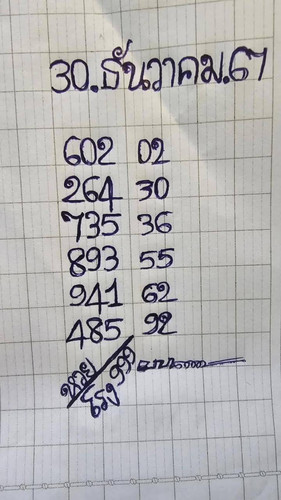 30.ธันวาคม.67
602 02
264 30
735 36
893 55
941 62
485 92
999